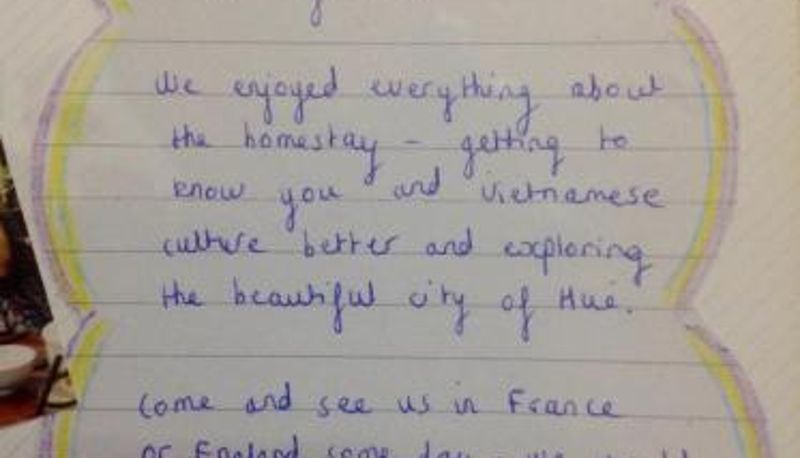 We enjoyed everything about
the homestay - getting to
know you and Vietnamese
culture better and exploring
the beautiful city of Hue.
Come and see us in France
or England some day